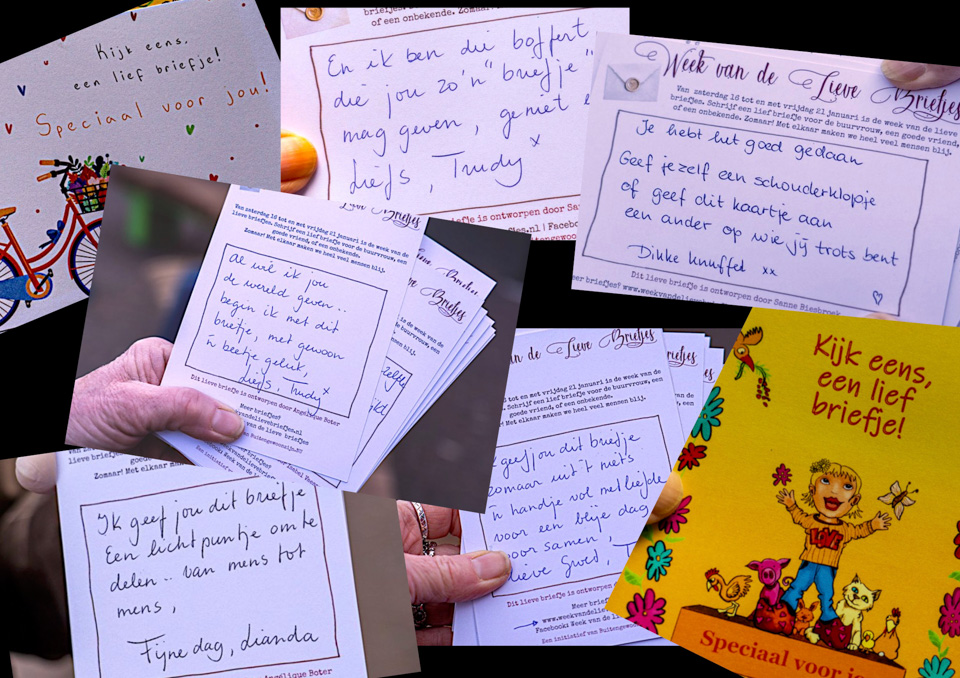 Kijk eens,
een lief briefje!
Speciaal voor jou!
of een onbekende. Zomaar!
En ik ben die boffert
die jou zo'n "briefje"
mag geven, geniet
Liefs, Trudy x
briefje is ontworpen door Sanne
.nl | Facebook
Week van de Lieve Briefjes
Van zaterdag 16 tot en met vrijdag 21 januari is de week van de lieve
briefjes. Schrijf een lief briefje voor de buurvrouw, een goede vriend,
of een onbekende. Zomaar! Met elkaar maken we heel veel mensen blij.
Je hebt het goed gedaan
Geef jezelf een schouderklopje
of geef dit kaartje aan
een ander op wie jij trots bent
Dikke knuffel xx
Dit lieve briefje is ontworpen door Sanne Biesbroek
Meer briefjes? www.weekvandelieve
Lieve Briefjes
Van zaterdag 16 tot en met vrijdag 21 januari is de week van de
lieve briefjes. Schrijf een lief briefje voor de buurvrouw, een
goede vriend, of een onbekende.
Zomaar! Met elkaar maken we heel veel mensen blij.
Al wil ik jou
de wereld geven..
begin ik met dit
briefje, met gewoon
'n beetje geluk,
Liefs, Trudy x
Dit lieve briefje is ontworpen door Angelique Boter
Meer briefjes?
vandelievebriefjes.nl
van de lieve briefjes
van Buitengewoonzijn.NU
de Lieve
Briefjes
is de week van de
buurvrouw, een
blij.
van de Lieve Briefjes
Briefjes
en met vrijdag 21 januari is de week van de
lief briefje voor de buurvrouw, een
goede vriend, of een onbekende.
Met elkaar maken we heel veel mensen blij.
geef jou dit briefje
zomaar uit 't niets
'n handje vol met liefde
voor een blije dag
voor samen,
lieve groet, T
Dit lieve briefje is ontworpen
Meer briefjes
www.weekvandelieve
Facebook: Week van de
Een initiatief van Buitengewoon
Van zaterdag 16 tot en met vrijdag 21
lieve briefjes.
Zomaar! Met elkaar maken we heel veel mensen
Ik geef jou dit briefje
Een lichtpuntje om te
delen.. van mens tot
mens,
Fijne dag, dianda
Angélique Boter
Kijk eens,
een lief
briefje!
LOVE
Speciaal voor jo